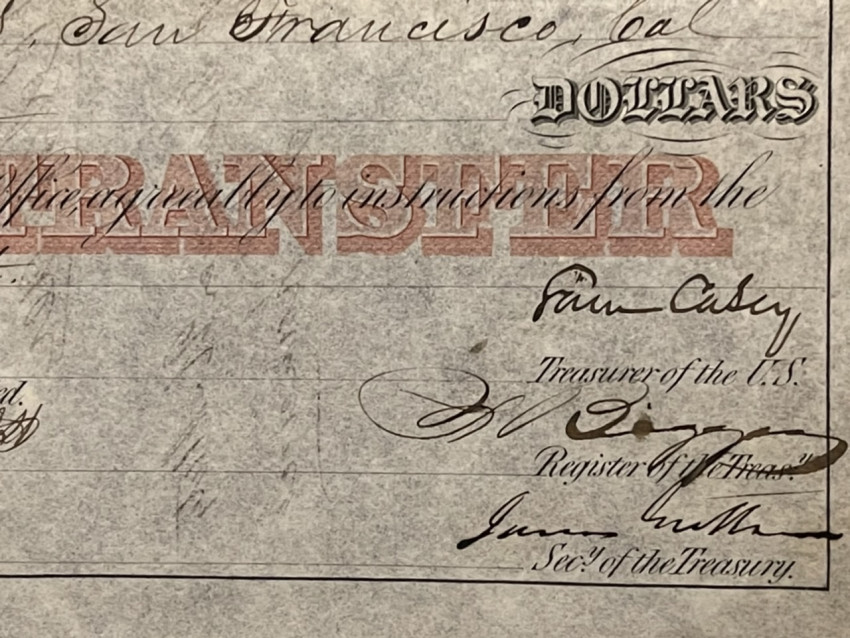 San Francisco, Cal
DOLLARS
TRANSFER
Office, agreeably to instructions from the
Sam Casey
Treasurer of the U.S.
Register of the Treas.y
James Guthrie
Sec.y of the Treasury.
ed.